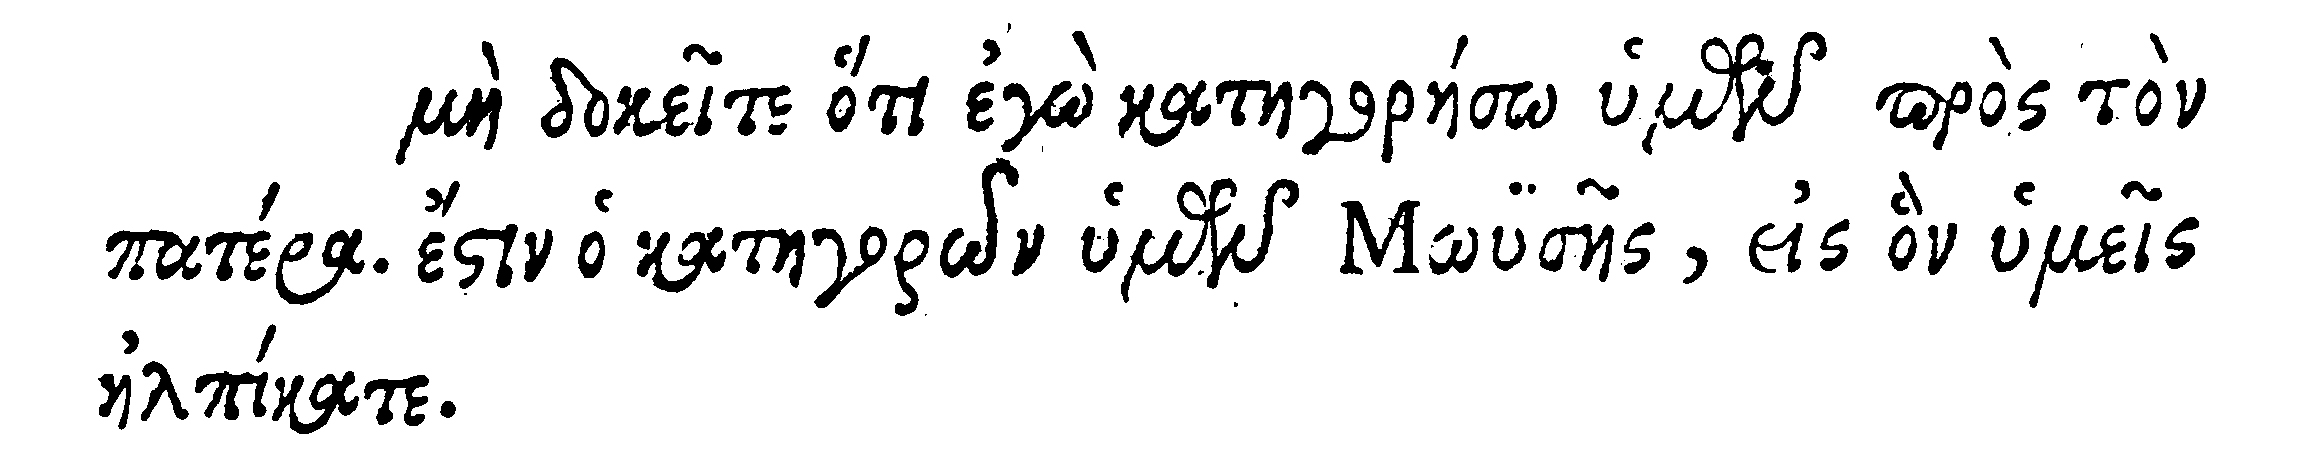 μὴ δοκεῖτε ὅτι ἐγὼ κατηγορήσω ὑμῶν πρὸς τὸν
πατέρα. ἔϛιν ὁ κατηγορῶν ὑμῶν Μωϋσῆς, εἰς ὃν ὑμεῖς
ἠλπίκατε.